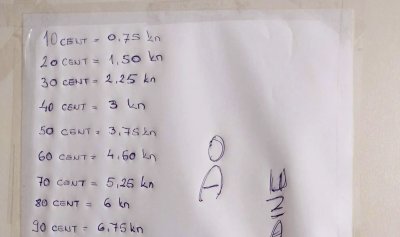 10 CENT = 0,75 kn
20 CENT = 1,50 kn
30 CENT = 2,25 kn
40 CENT = 3 kn
50 CENT = 3,75 kn
60 CENT = 4,60 kn
70 CENT = 5,25 kn
80 CENT = 6 kn
90 CENT = 6,75 kn
AO
DINE